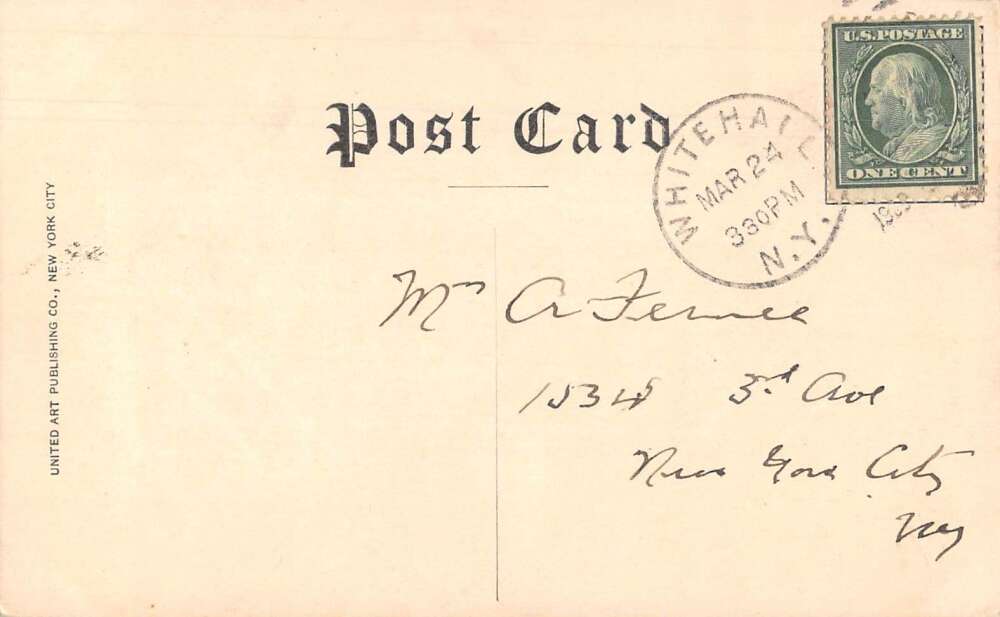 Post Card
U.S. POSTAGE
ONE CENT
WHITEHALL
MAR 24
330PM
N.Y.
UNITED ART PUBLISHING CO., NEW YORK CITY
A
3rd Ave
New York City
NY